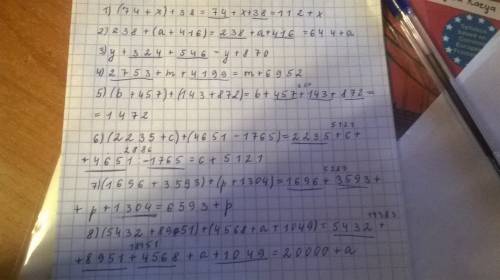 1) (74 + x) + 38 = 74 + x + 38 = 112 + x
2) 238 + (a + 416) = 238 + a + 416 = 644 + a
3) y + 324 + 546 - y + 870
4) 2753 + m + 4199 = m + 6952
5) (b + 457) + (143 + 872) = b + 457 + 143 + 872 =
= 1472
5121
6) (2235 + c) + (4651 - 1765) = 2235 + c +
2886
+ 4651 - 1765 = c + 5121
7) (1696 + 3593) + (p + 1304) = 1696 + 3593 +
+ p + 1304 = 6593 + p
8) (5432 + 8951) + (4568 + a + 1049) = 5432 +
+ 8951 + 4568 + a + 1049 = 20000 + a